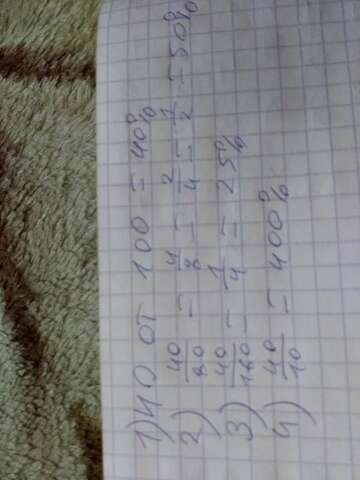 1) 40 от 100 = 40%
2) 40/80 = 4/8 = 2/4 = 1/2 = 50%
3) 40/160 = 1/4 = 25%
4) 40/10 = 400%